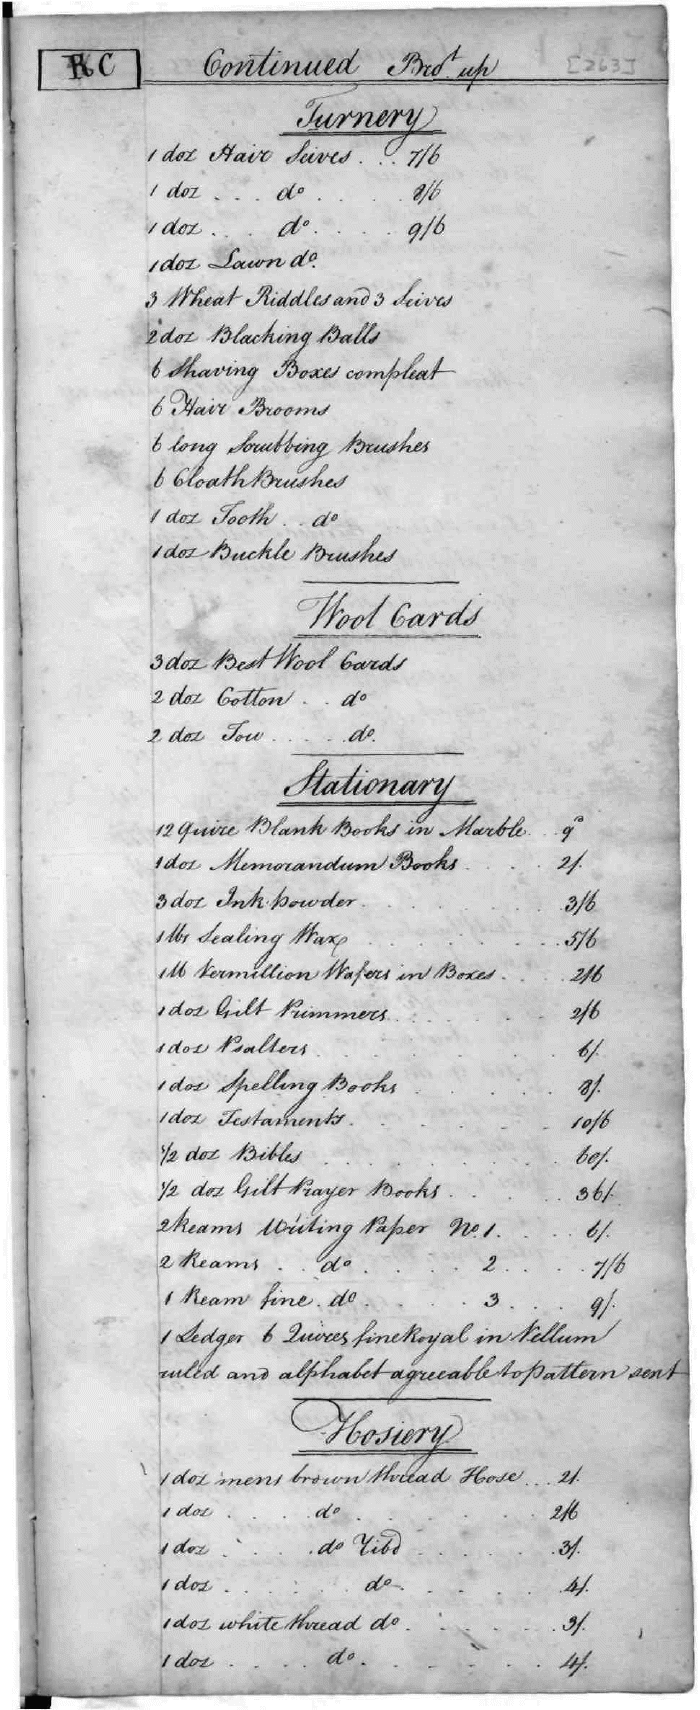 RC Continued Bro.t up [263]
Turnery
1 doz Hair Seives . . . 7/6
1 doz . . . do . . . . . 8/6
1 doz . . . do . . . . . 9/6
1 doz Lawn do.
3 Wheat Riddles and 3 Seives
2 doz Blacking Balls
6 Shaving Boxes compleat
6 Hair Brooms
6 long Scrubbing Brushes
6 Cloath Brushes
1 doz Tooth . . do
1 doz Buckle Brushes
Wool Cards
3 doz Best Wool Cards
2 doz Cotton . . do
2 doz Tow . . . . . do.
Stationary
12 Quire Blank Books in Marble . . 9d
1 doz Memorandum Books . . . . 2/.
3 doz Ink powder . . . . . . . . 3/6
1 lbs Sealing Wax . . . . . . . . 5/6
1 lb Vermillion Wafers in Boxes . . . 2/6
1 doz Gilt Primmers . . . . . . 2/6
1 doz Psalters . . . . . . . 6/.
1 doz Spelling Books . . . . . 8/.
1 doz Testaments . . . . . . 10/6
1/2 doz Bibles . . . . . . . 60/.
1/2 doz Gilt Prayer Books . . . . 36/.
2 Reams Writing Paper No. 1 . . . . 6/.
2 Reams . . do . . . . . 2 . . . . 7/6
1 Ream fine . do . . . . . 3 . . . . 9/.
1 Ledger 6 Quires fine Royal in Vellum
ruled and alphabet agreeable to pattern sent
Hosiery
1 doz mens brown thread Hose . . . 2/.
1 doz . . . . . do . . . . . . . 2/6
1 doz . . . . . do Ribd . . . . . 3/.
1 doz . . . . . . do . . . . . . 4/.
1 doz white thread do . . . . . . 3/.
1 doz . . . . . do . . . . . . . 4/.